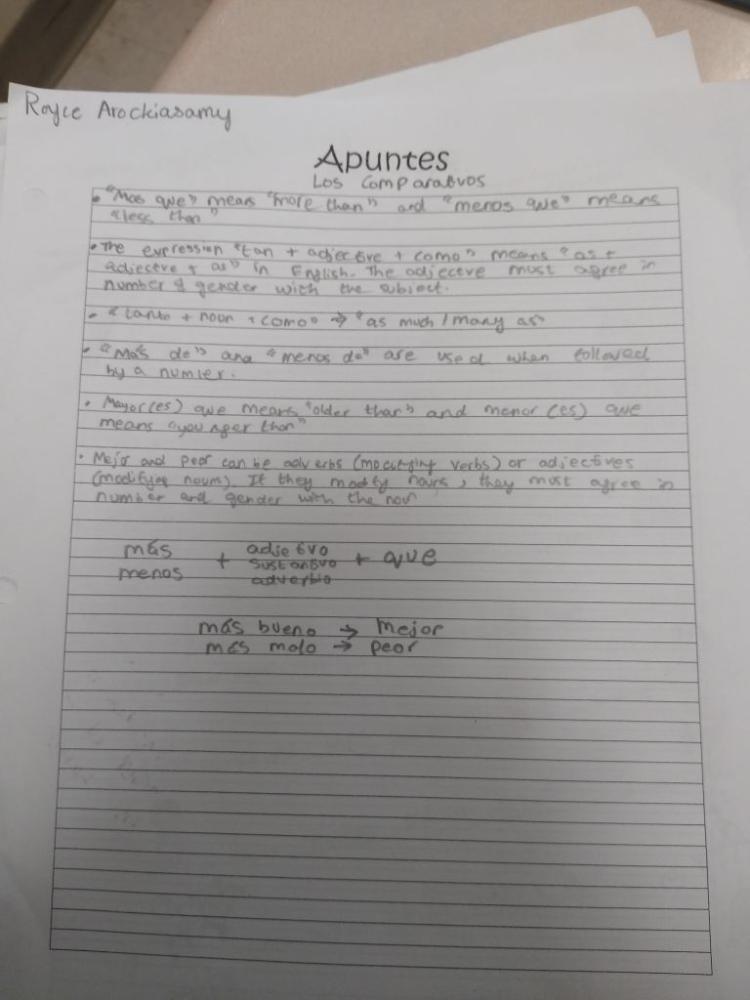 Royce Arockiasamy
Apuntes
Los Comparativos
• "Mas que" means "more than" and "menos que" means
"less than"
• The expression "tan + adjective + como" means "as +
adjective + as" in English. The adjective must agree in
number & gender with the subject.
• "tanto + noun + como" → "as much / many as"
• "Más de" and "menos de" are used when followed
by a number.
• Mayor(es) que means "older than" and menor (es) que
means "younger than"
• Mejor and peor can be adverbs (modifying verbs) or adjectives
(modifying nouns). If they modify nouns, they must agree in
number and gender with the noun
más + adjetivo + que
menos sustantivo
adverbio
más bueno → mejor
más malo → peor